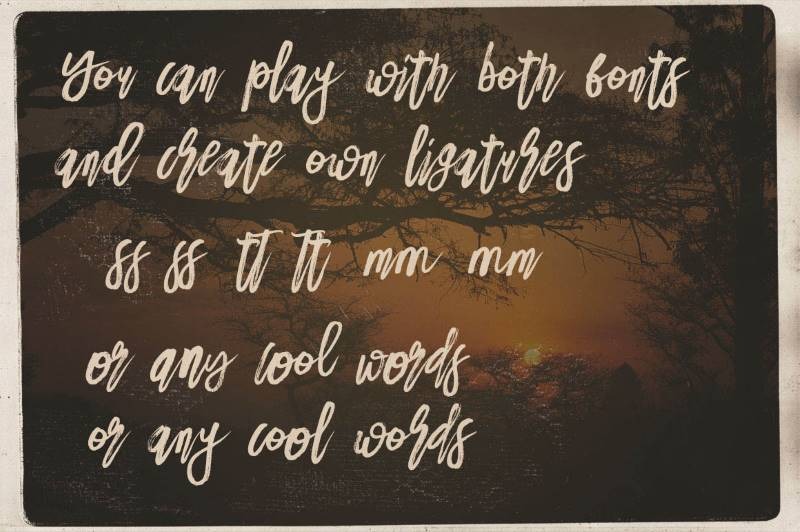 You can play with both fonts
and create own ligatures
ss ss tt tt mm mm
or any cool words
or any cool words